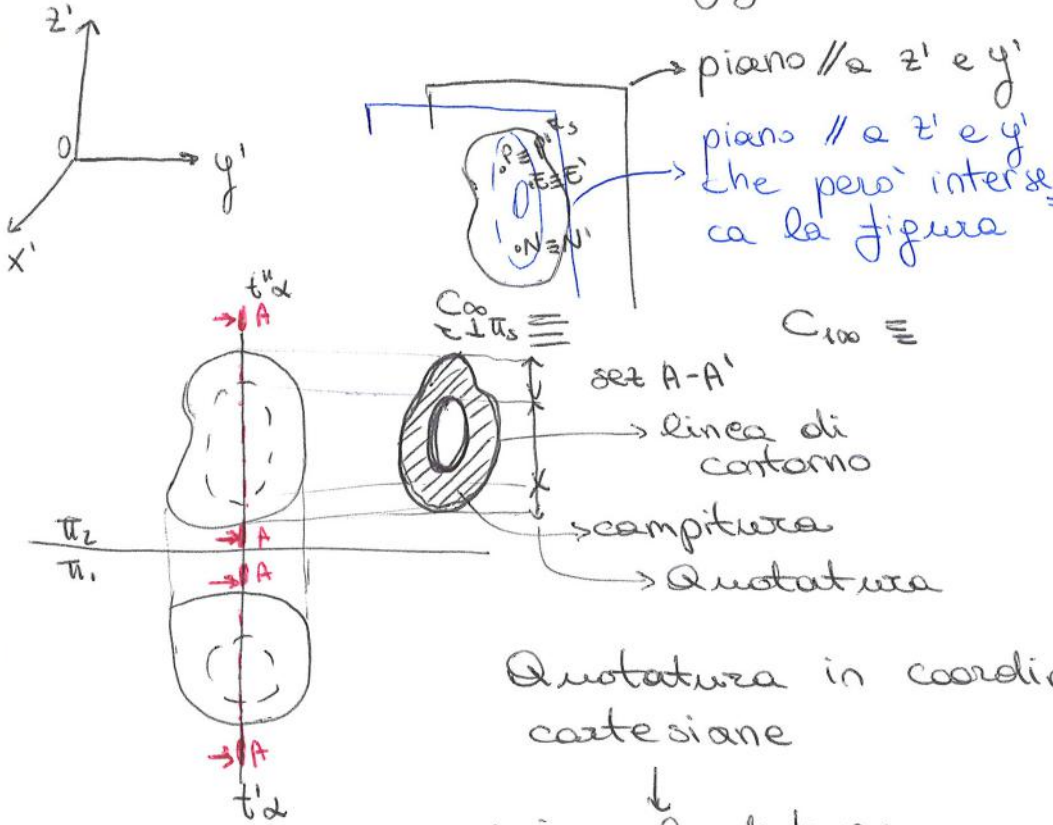 z'
O
y'
x'
piano // a z' e y'
piano // a z' e y'
che però interse
ca la figura
P ≡ P'
E ≡ E'
N ≡ N'
t"α
A
C∞
⊥ πs
C100 ≡
sez A-A'
linea di
contorno
campitura
Quotatura
π2
π1
A
A
A
t'α
Quotatura in coordin
cartesiane